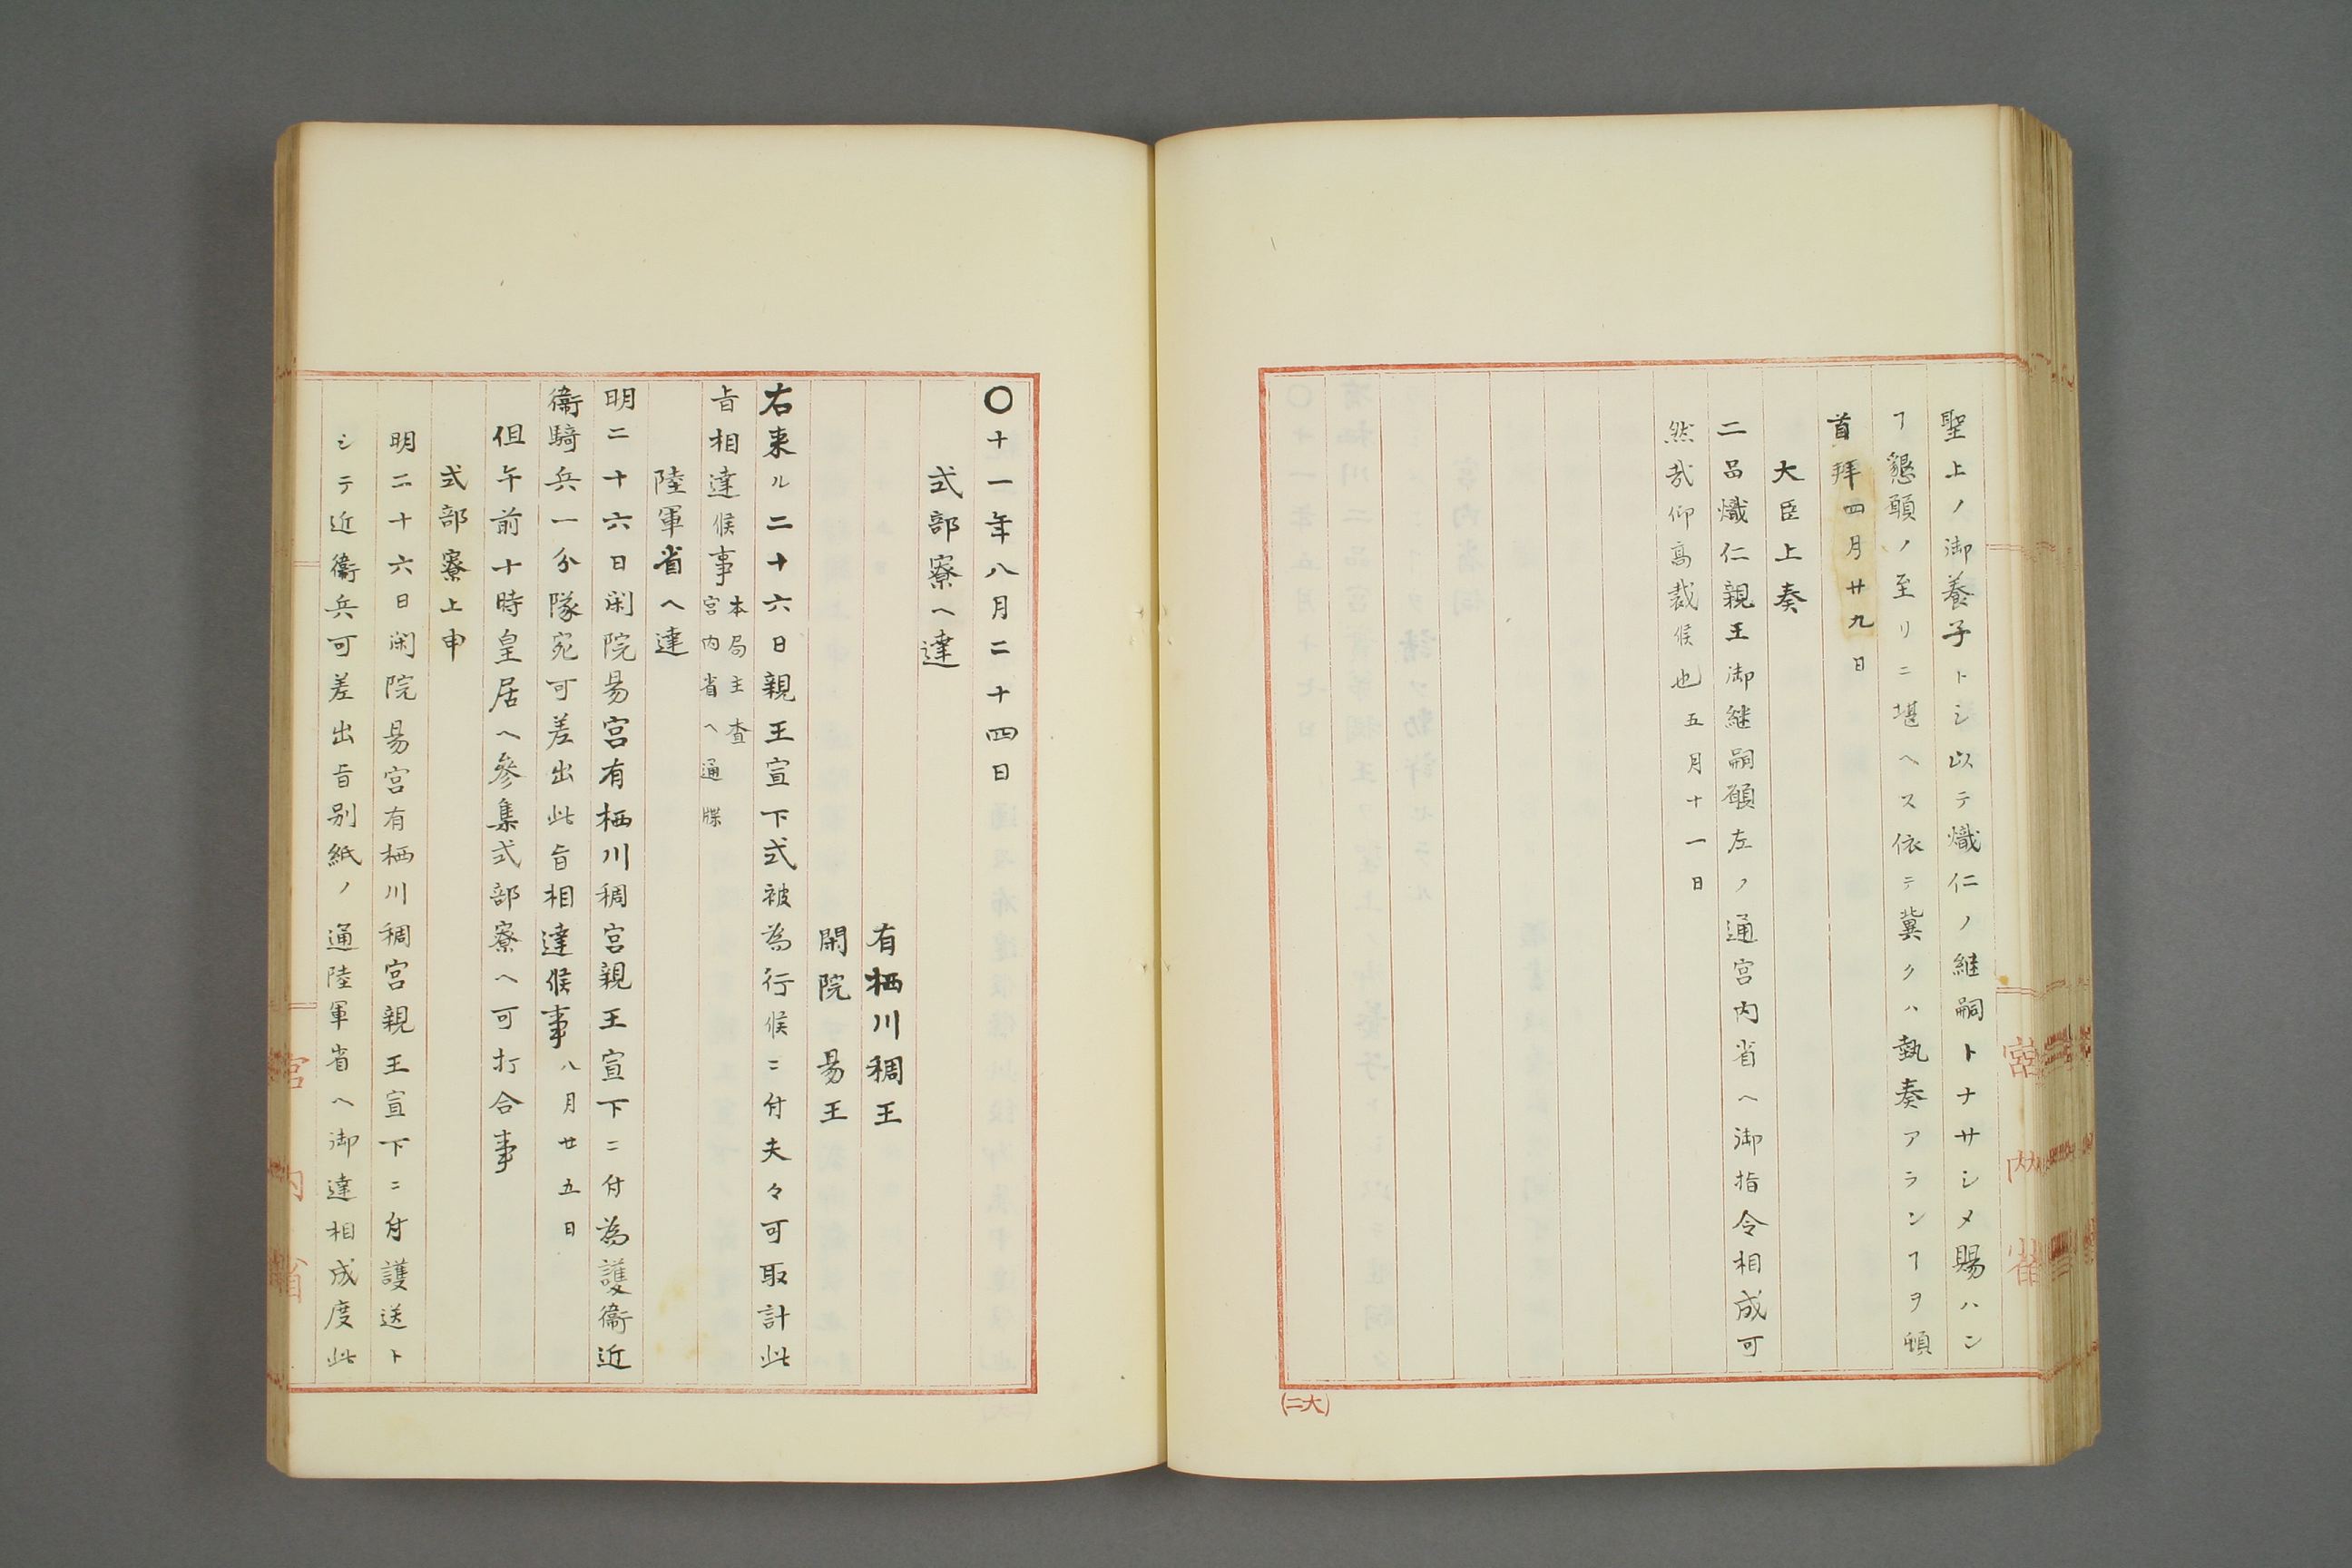 聖上ノ御養子トシ以テ熾仁ノ継嗣トナサシメ賜ハン
ヿ懇願ノ至リニ堪ヘス依テ冀クハ執奏アランヿヲ頓
首拝四月廿九日
大臣上奏
二品熾仁親王御継嗣願左ノ通宮内省ヘ御指令相成可
然哉仰高裁候也五月十一日
(二大)
宮内省
〇十一年八月二十四日
式部寮ヘ達
有栖川稠王
閑院易王
右来ル二十六日親王宣下式被為行候ニ付夫々可取計此
旨相達候事
本局主査
宮内省ヘ通牒
陸軍省ヘ達
明二十六日閑院易宮有栖川稠宮親王宣下ニ付為護衛近
衛騎兵一分隊宛可差出此旨相達候事八月廿五日
但午前十時皇居ヘ参集式部寮ヘ可打合事
式部寮上申
明二十六日閑院易宮有栖川稠宮親王宣下ニ付護送ト
シテ近衛兵可差出旨別紙ノ通陸軍省ヘ御達相成度此
宮内省